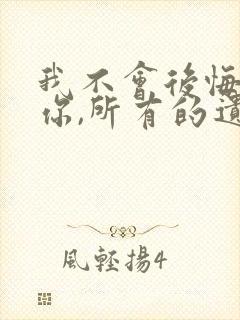 我不會後悔
你,所有的遺
風輕揚4